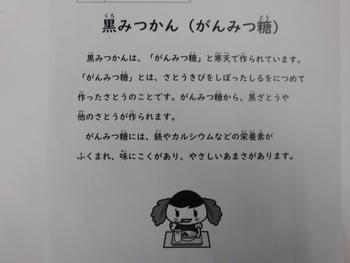 黒みつかん（がんみつ糖）
黒みつかんは、「がんみつ糖」と寒天で作られています。
「がんみつ糖」とは、さとうきびをしぼったしるをにつめて
作ったさとうのことです。がんみつ糖から、黒ざとうや
他のさとうが作られます。
がんみつ糖には、鉄やカルシウムなどの栄養素が
ふくまれ、味にこくがあり、やさしいあまさがあります。